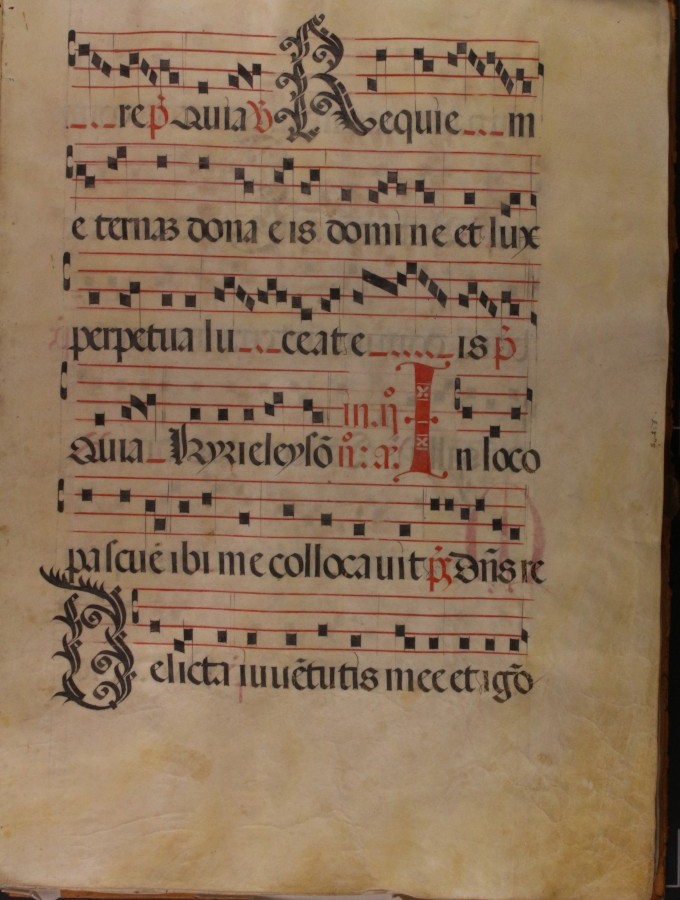 re p̃ Quia v̄ Requie m
e ternaʒ dona e is domi ne et lux
perpetua lu ceat e is p̃
Quia kyrieleysõ in.iiȷ̊ n̊: a: In loco
pascuē ibi me collocauit p̄s Dñs re
Delicta iuuētutis mee et igõ